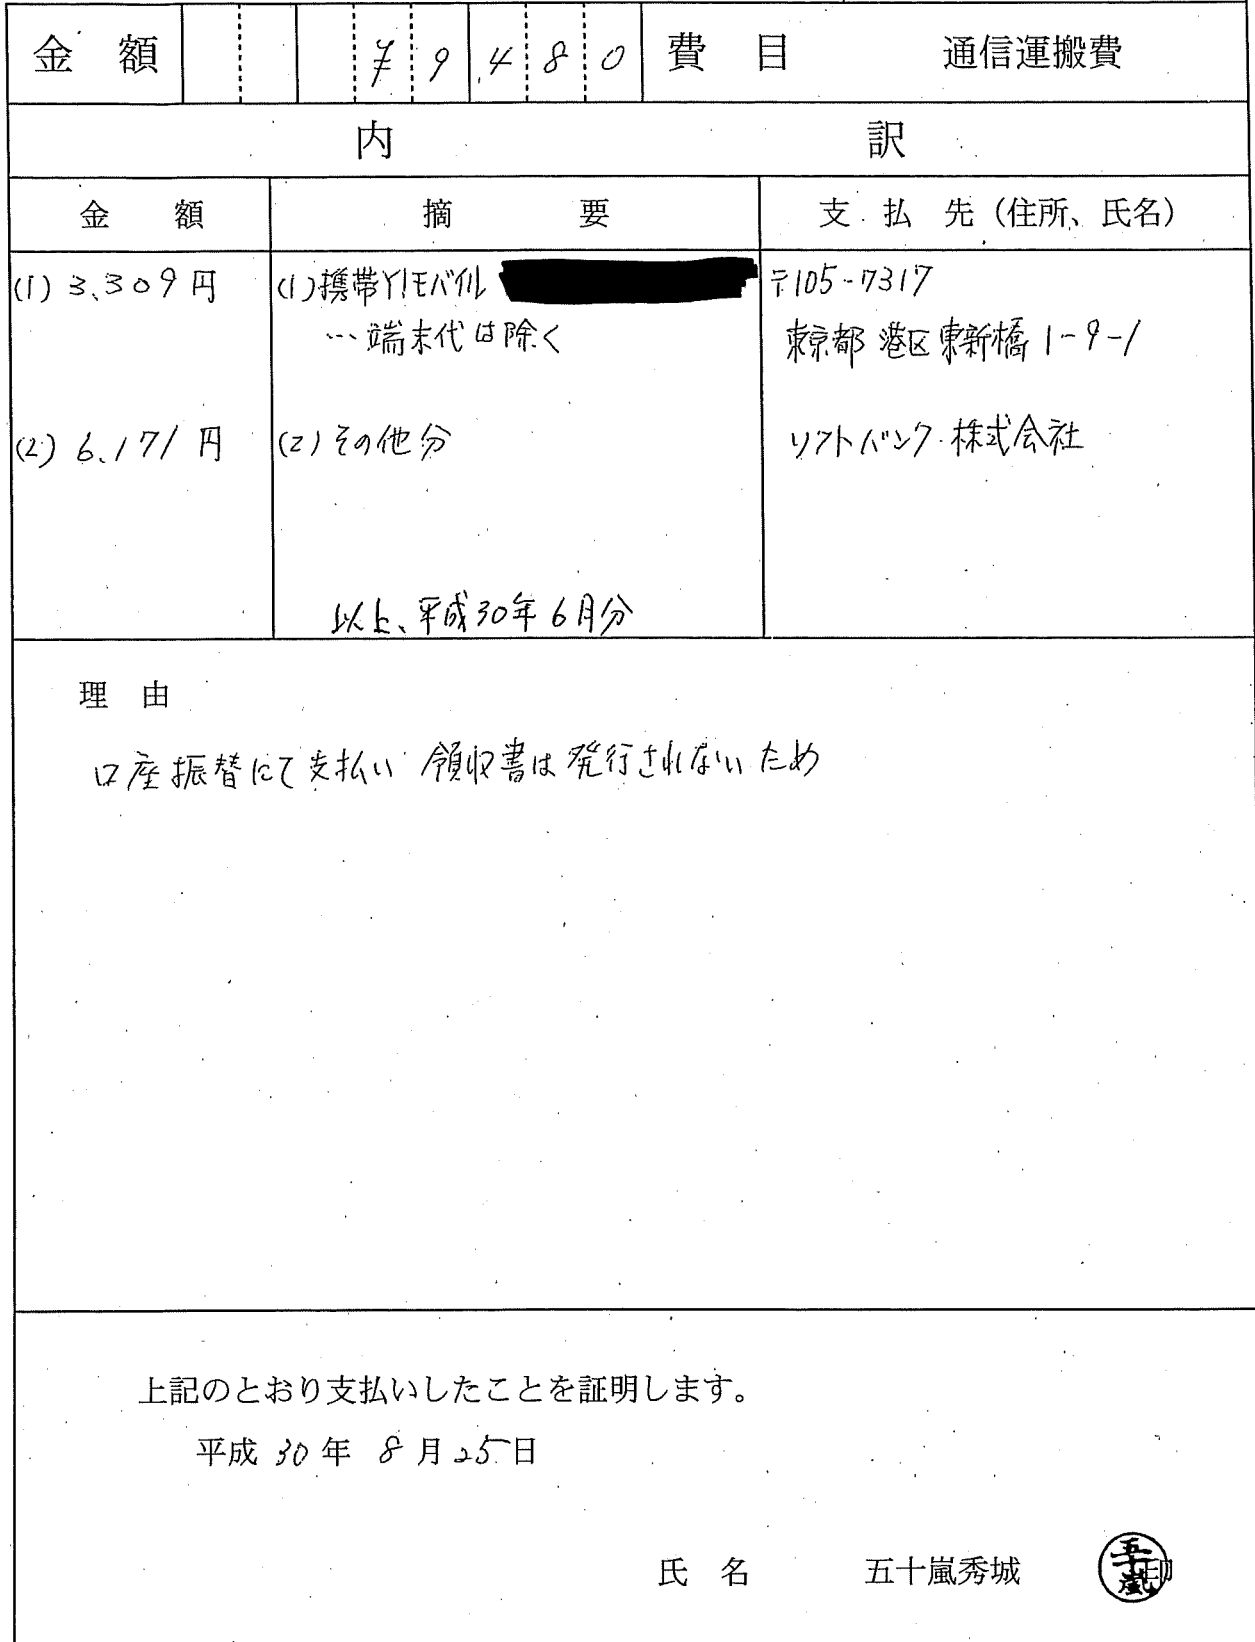 金額 ¥9,480 費目 通信運搬費
内訳
金額 摘要 支払先（住所、氏名）
(1) 3,309円 (1)携帯Y!モバイル 〒105-7317
…端末代は除く 東京都港区東新橋1-9-1
(2) 6,171円 (2)その他分 ソフトバンク株式会社
以上、平成30年6月分
理由
口座振替にて支払い 領収書は発行されないため
上記のとおり支払いしたことを証明します。
平成30年8月25日
氏名 五十嵐秀城 印
五十嵐